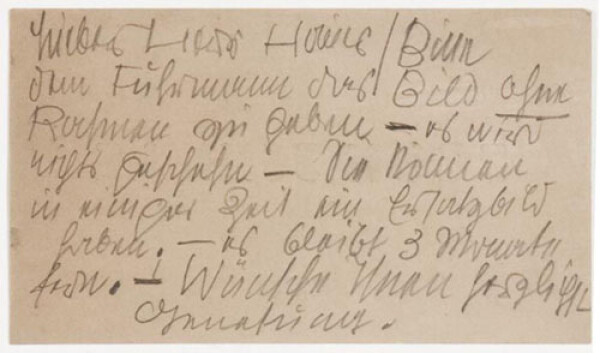 Lieber Herr Haas / Bitte
dem Fuhrmann das Bild ohne
Rahmen zu geben – es wird
nichts geschehn – Sie können
in einiger Zeit ein Ersatzbild
haben. – es bleibt 3 Monate
fern. – Wünsche Ihnen herzlichst
Genesung.